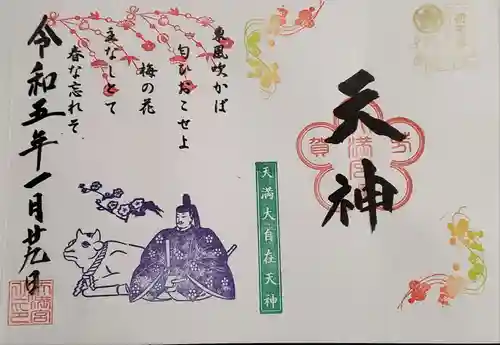 天神
芳賀
天満宮
天満大自在天神
東風吹かば
匂ひおこせよ
梅の花
主なしとて
春な忘れそ
令和五年一月廿九日